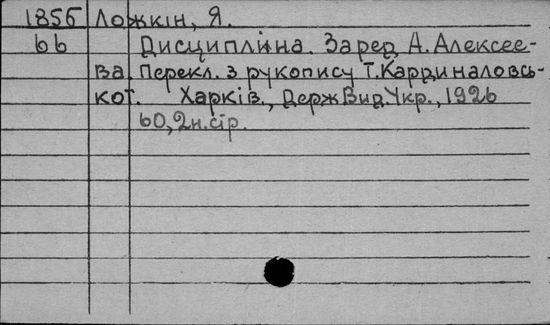 1856 Ложкін, Я.
бб Дисципліна. Заред А. Алексее-
ва. Перекл. з рукопису Т. Кардиналовсь-
кої. Харків., ДержВид.Укр., 1926
60, 2н.стр.